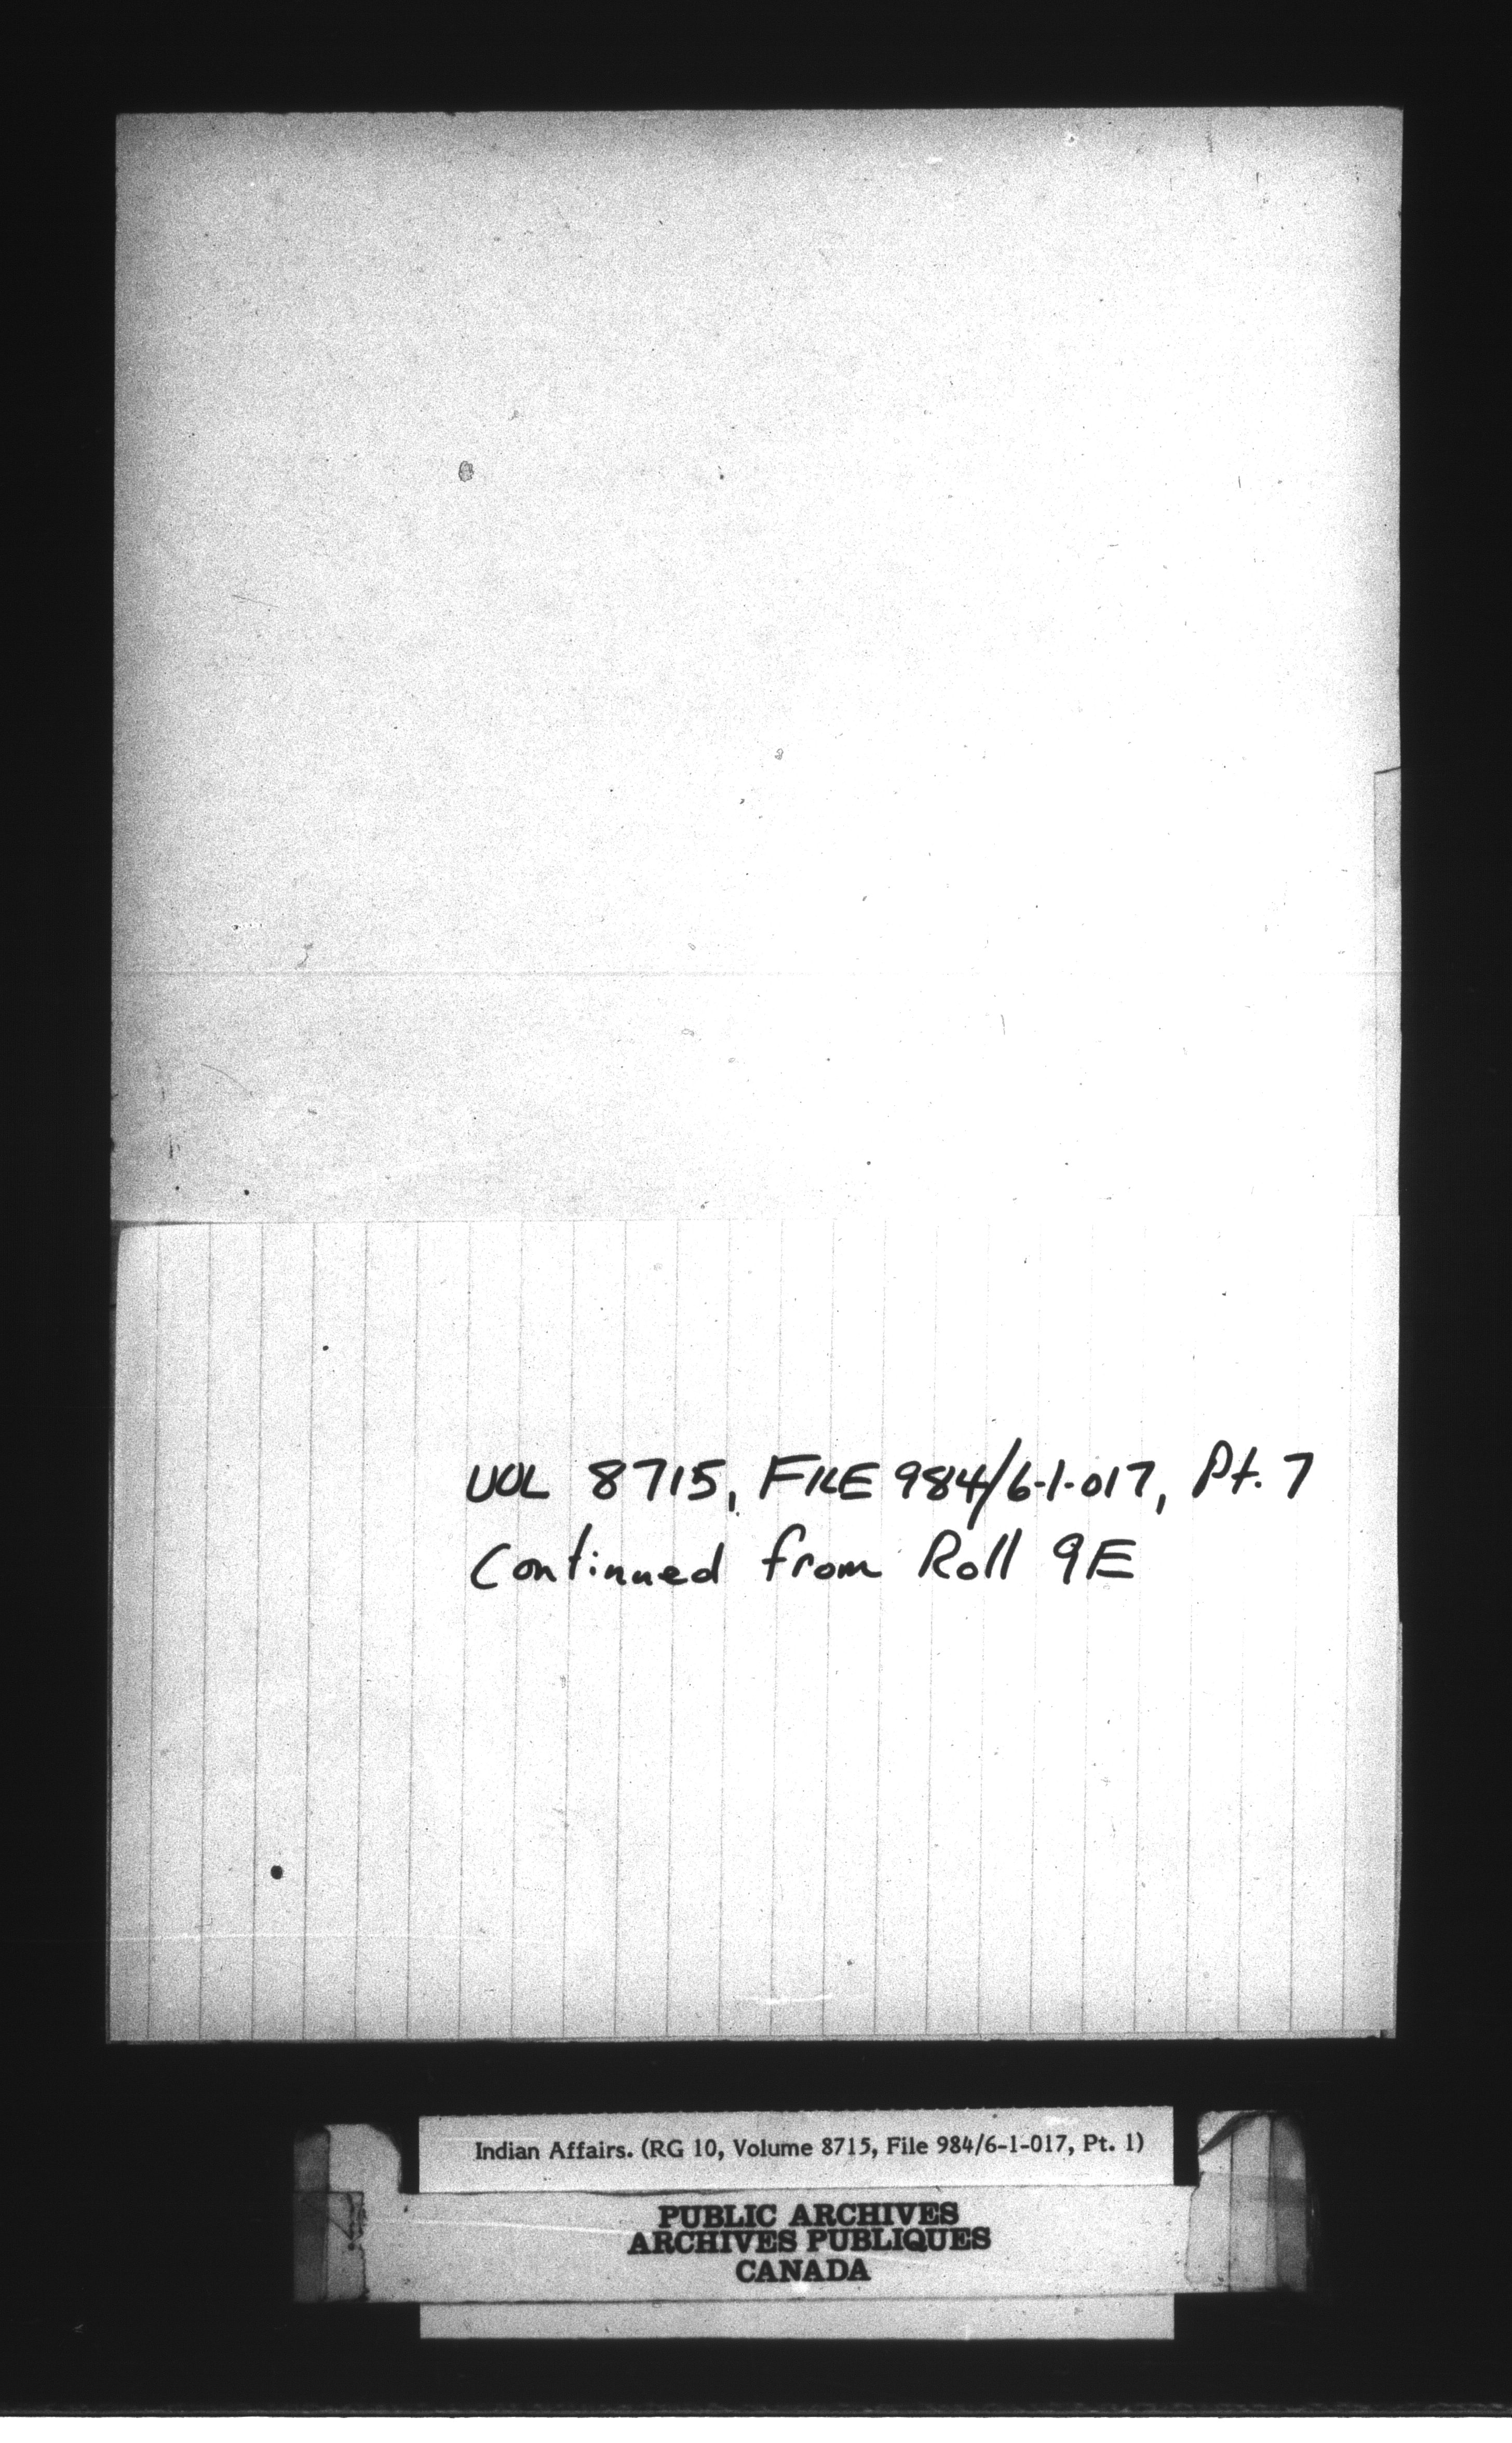 VOL 8715, FILE 984/6-1-017, Pt. 7
Continued from Roll 9E
Indian Affairs. (RG 10, Volume 8715, File 984/6-1-017, Pt. 1)
PUBLIC ARCHIVES
ARCHIVES PUBLIQUES
CANADA